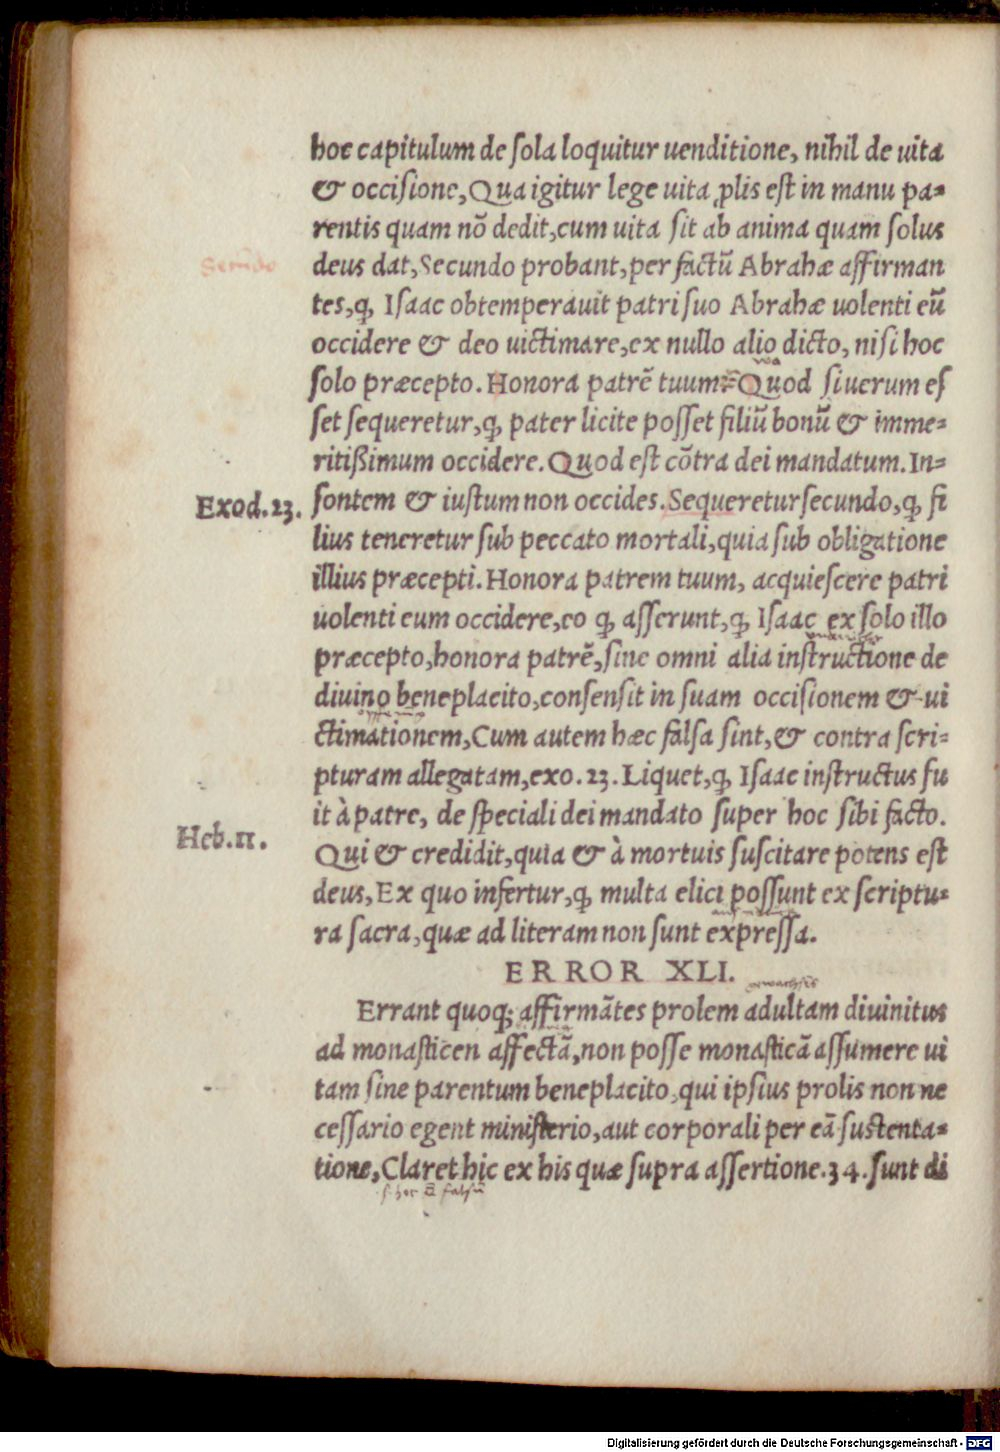 hoc capitulum de ſola loquitur uenditione, nihil de uita
& occiſione, Qua igitur lege uita ꝓlis eſt in manu pa⸗
rentis quam nō dedit, cum uita ſit ab anima quam ſolus
Secundo
deus dat, Secundo probant, per factū Abrahæ affirman
tes, ꝙ Iſaac obtemperauit patri ſuo Abrahæ uolenti eū
occidere & deo uictimare, ex nullo alio dicto, niſi hoc
ſolo præcepto. Honora patrē tuum: Quod ſi uerum eſ
ſet ſequeretur, ꝙ pater licite poſſet filiū bonū & imme⸗
ritißimum occidere. Quod eſt cōtra dei mandatum. In⸗
Exod. 23.
ſontem & iuſtum non occides. Sequeretur ſecundo, ꝙ fi
lius teneretur ſub peccato mortali, quia ſub obligatione
illius præcepti. Honora patrem tuum, acquieſcere patri
uolenti eum occidere, eo ꝙ aſſerunt, ꝙ Iſaac ex ſolo illo
præcepto, honora patrē, ſine omni alia inſtructione de
diuino beneplacito, conſenſit in ſuam occiſionem & ui
ctimationem, Cum autem hæc falſa ſint, & contra ſcri⸗
pturam allegatam, exo. 23. Liquet, ꝙ Iſaac inſtructus fu
it à patre, de ſpeciali dei mandato ſuper hoc ſibi facto.
Heb. 11.
Qui & credidit, quia & à mortuis ſuſcitare potens eſt
deus, Ex quo infertur, ꝙ multa elici poſſunt ex ſcriptu⸗
ra ſacra, quæ ad literam non ſunt expreſſa.
ERROR XLI.
Errant quoq; affirmātes prolem adultam diuinitus
ad monaſticen affectā, non poſſe monaſticā aſſumere ui
tam ſine parentum beneplacito, qui ipſius prolis non ne
ceſſario egent miniſterio, aut corporali per eā ſuſtenta⸗
tione, Claret hic ex his quæ ſupra aſſertione. 34. ſunt di
ſ. hoc falſū
Digitalisierung gefördert durch die Deutsche Forschungsgemeinschaft - DFG